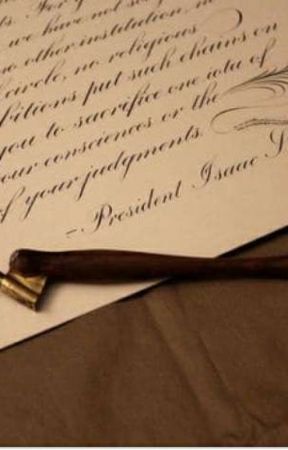 we have not
other institution, in
circle, no religious
put such chains on
you to sacrifice one iota of
our consciences or the
of your judgments.
- President Isaac